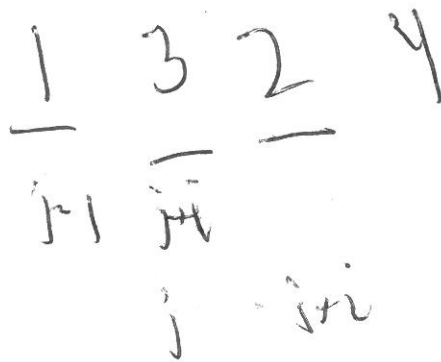 1 3 2 4
j-1 j+1
j j+2